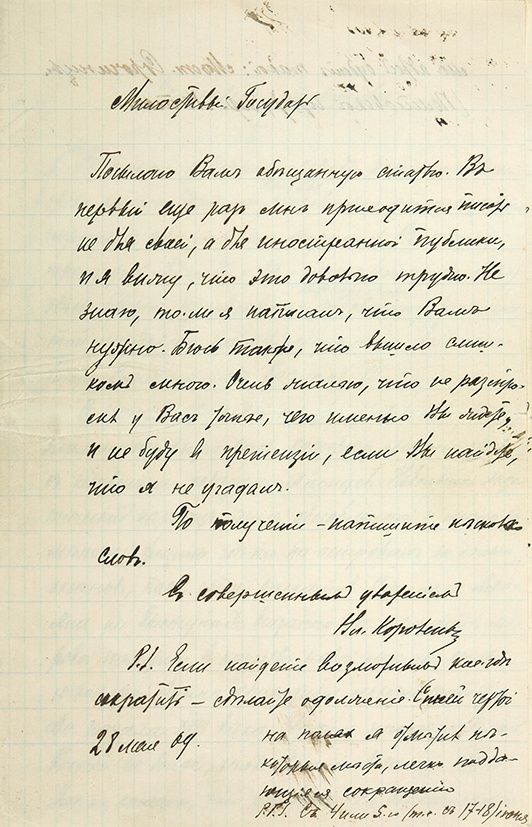 Милостивый Государь
Посылаю Вамъ обѣщанную статью. Въ
первый еще разъ мнѣ приходится писать
не для своей, а для иностранной публики,
и я вижу, что это довольно трудно. Не
знаю, то-ли я написалъ, что Вамъ
нужно. Боюсь также, что вышло слиш-
комъ много. Очень жалѣю, что не разспро-
силъ у Васъ точнѣе, чего именно Вы
и не буду въ претензіи, если Вы найдете,
что я не угадалъ.
По полученіи – напишите нѣсколько
словъ.
Съ совершеннымъ уваженіемъ
Вл. Короленко
P.S. Если найдете возможнымъ кое-гдѣ
сократить – сдѣлайте одолженіе. Синей чертой
28 мая 09. на поляхъ я отмѣтилъ нѣ-
которыя мѣста, легко подда-
ющіяся сокращенію
P.P.S. Съ 4 или 5-го (т.е. съ 17-18